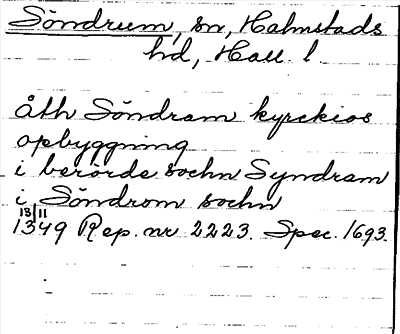 Söndrum, sn, Halmstads
hd, Hall. l.
åth Söndram kyrckios
opbyggning
i berörde sochn Syndram
i Söndrom sochn
13/11
1349 Rep. nr 2223. Spec. 1693.